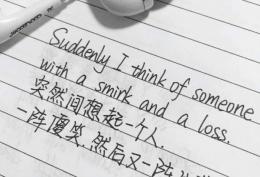 Suddenly I think of someone
with a smirk and a loss.
突然间想起一个人.
一阵傻笑.然后又一阵